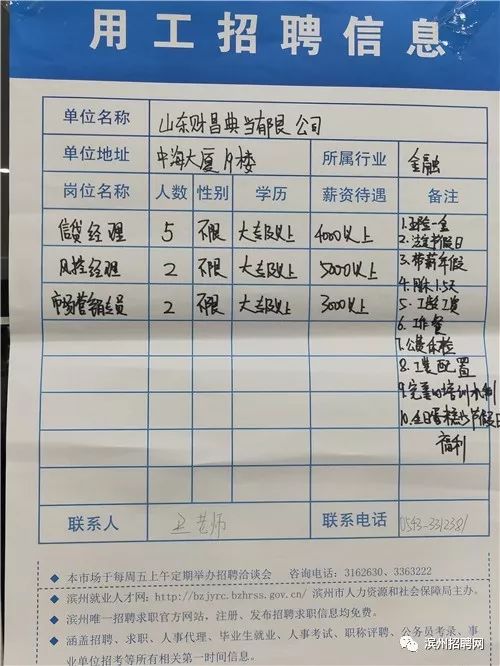 用工招聘信息
单位名称 山东财昌典当有限公司
单位地址 中海大厦 楼 所属行业 金融
岗位名称 人数 性别 学历 薪资待遇 备注
信贷经理 5 不限 大专及以上 4000以上
风控经理 2 不限 大专及以上 5000以上
市场营销员 2 不限 大专及以上 3000以上
1.五险一金
2.法定节假日
3.带薪年假
4.周休1.5天
5.工龄工资
6.工作餐
7.公费体检
8.工装配置
9.完善的培训机制
10.生日蛋糕 节假日
福利
联系人 老师 联系电话 0543-3312381
◆ 本市场于每周五上午定期举办招聘洽谈会 咨询电话:3162630、3363222
◆ 滨州就业人才网:http://bzjyrc.bzhrss.gov.cn/ 滨州市人力资源和社会保障局主办。
◆ 滨州唯一招聘求职官方网站,注册、发布招聘求职信息均免费。
◆ 涵盖招聘、求职、人事代理、毕业生就业、人事考试、职称评聘、公务员考录、事
业单位招考等所有相关第一时间信息。
滨州招聘网